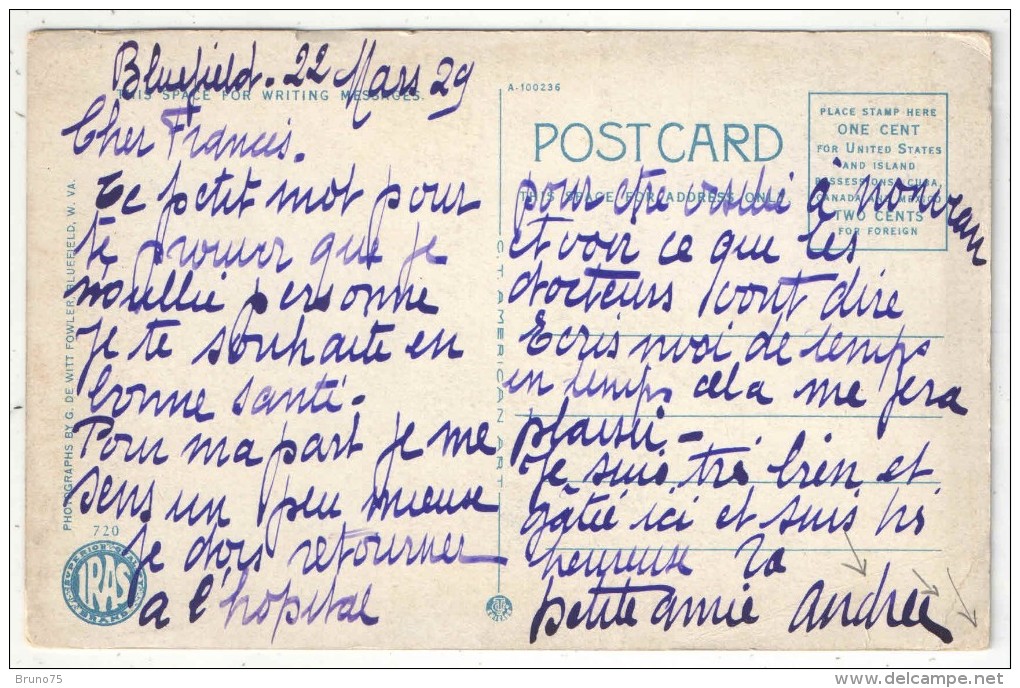 Bluefield. 22 Mars 29
THIS SPACE FOR WRITING MESSAGES.
Cher Francis.
Ce petit mot pour
te prouver que je
n'oublie personne
Je te souhaite en
bonne santé.
Pour ma part je me
sens un peu mieux
je dois retourner
a l'hopital
A-100236
POST CARD
THIS SPACE FOR ADDRESS ONLY.
PLACE STAMP HERE
ONE CENT
FOR UNITED STATES
AND ISLAND
POSSESSIONS, CUBA,
CANADA AND MEXICO
TWO CENTS
FOR FOREIGN
pour être à nouveau
et voir ce que les
docteurs vont dire
Ecris moi de temps
en temps cela me fera
plaisir -
Je suis très bien et
gâtée ici et suis
heureuse ta
petite amie Andrée
PHOTOGRAPHS BY G. DE WITT FOWLER, BLUEFIELD, W. VA.
C. T. AMERICAN ART
720
IRAS
Bruno75
www.delcampe.net